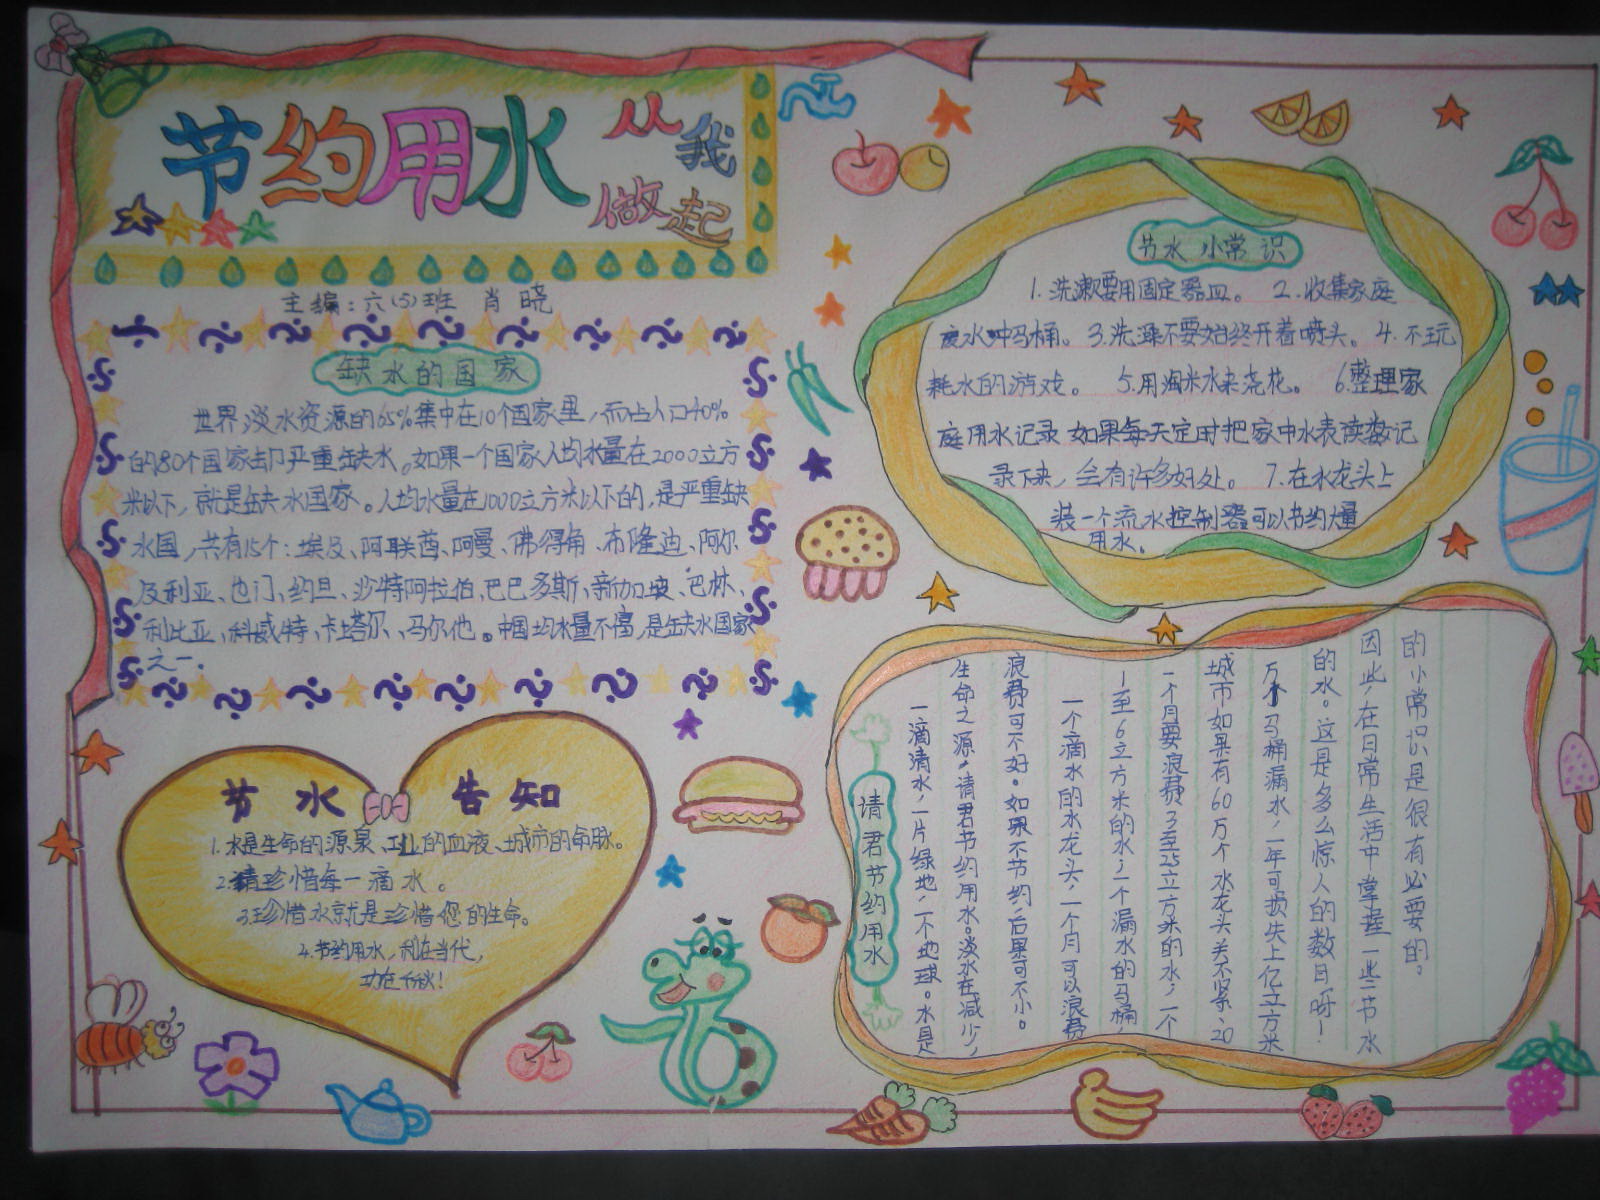 节约用水
从我
做起
主编：六(5)班 肖晓
缺水的国家
世界淡水资源的65%集中在10个国家里，而占人口40%
的80个国家却严重缺水。如果一个国家人均水量在2000立方
米以下，就是缺水国家。人均水量在1000立方米以下的，是严重缺
水国，共有15个：埃及、阿联酋、阿曼、佛得角、布隆迪、阿尔
及利亚、也门、约旦、沙特阿拉伯、巴巴多斯、新加坡、巴林、
利比亚、科威特、卡塔尔、马尔他。中国均水量不富，是缺水国家
之一.
节水 小常识
1.洗漱要用固定器皿。 2.收集家庭
废水冲马桶。3.洗澡不要始终开着喷头。4.不玩
耗水的游戏。 5.用淘米水来浇花。 6.整理家
庭用水记录 如果每天定时把家中水表读数记
录下来，会有许多好处。 7.在水龙头上
装一个流水控制器可以节约大量
用水。
节水 告知
1.水是生命的源泉、工业的血液、城市的命脉。
2.请珍惜每一滴水。
3.珍惜水就是珍惜您的生命。
4.节约用水，利在当代，
功在千秋！
请君节约用水
一滴清水，一片绿地，一个地球。水是
生命之源，请君节约用水。淡水在减少，
浪费可不好。如果不节约，后果可不小。
一个滴水的水龙头，一个月可以浪费
1至6立方米的水，一个漏水的马桶，
一个月要浪费3至25立方米的水，一个
城市如果有60万个水龙头关不紧、20
万个马桶漏水，一年可损失上亿立方米
的水。这是多么惊人的数目呀！
因此，在日常生活中掌握一些节水
的小常识是很有必要的。